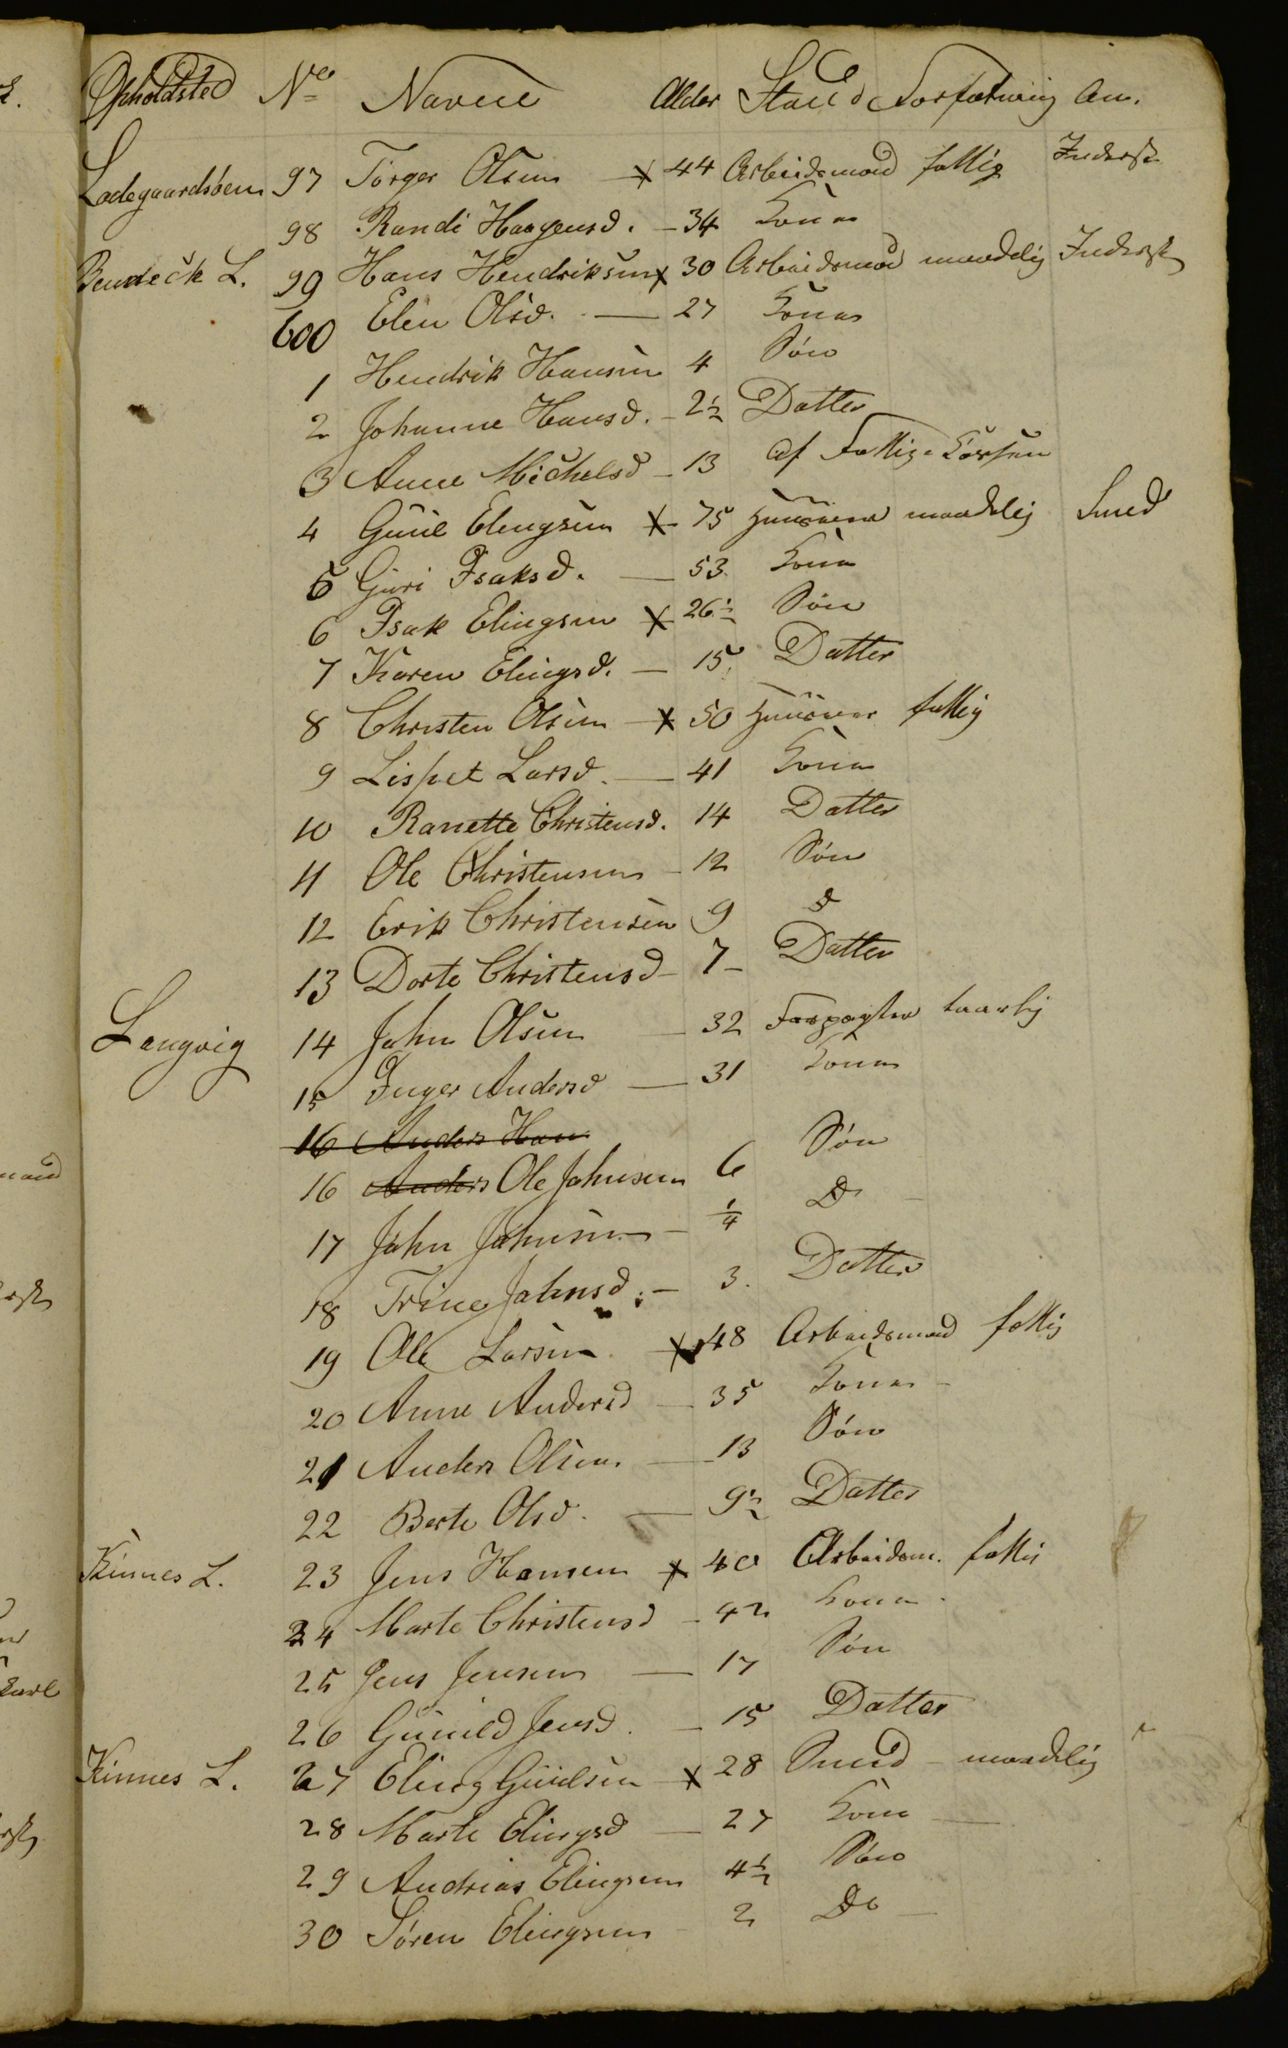 Opholdsted No Navne Alder Stand Forfatning An.
Ladegaardsøen 97 Torger Olsen x 44 Arbeidsmand fattig Inderst
98 Randi Haagensd. - 34 Kone
L. 99 Hans Hendriksen x 30 Arbeidsmand maadelig Inderst
600 Elen Olsd. - 27 Kone
1 Hendrik Hansen 4 Søn
2 Johanne Hansd. - 2½ Datter
3 Anne Michelsd - 13 af Fattig Kassen
4 Guul Elingsen x 75 Huusmand maadelig Smed
5 Guri Isaksd. - 53 Kone
6 Isak Elingsen x 26½ Søn
7 Karen Elingsd. - 15 Datter
8 Christen Olsen - x 50 fattig
9 Lispet Larsd. - 41 Kone
10 Ranette Christensd. 14 Datter
11 Ole Christensen - 12 Søn
12 Erik Christensen 9 d
13 Dorte Christensd - 7 - Datter
Langvig 14 John Olsen - 32 Forpagter taarlig
15 Inger Andersd - 31 Kone
16 Anders Han
16 Anders Ole Johnsen 6 Søn
17 John Johnsen - ¼ D -
18 Trine Johnsd. - 3. Datter
19 Ole Larsen x 48 Arbeidsmand fattig
20 Anne Andersd - 35 Kone -
21 Anders Olsen - 13 Søn
22 Berte Olsd. - 9½ Datter
Kinnes L. 23 Jens Hansen x 40 Arbeidsm. fattig
24 Marte Christensd - 42 Kone
25 Jens Jensen - 17 Søn
26 Gunild Jensd. - 15 Datter
Kinnes L. 27 Eling Guulsen x 28 Smed - maadelig
28 Marte Elingsd - 27 Kone -
29 Andrias Elingsen 4½ Søn
30 Søren Elingsen - 2 Do -